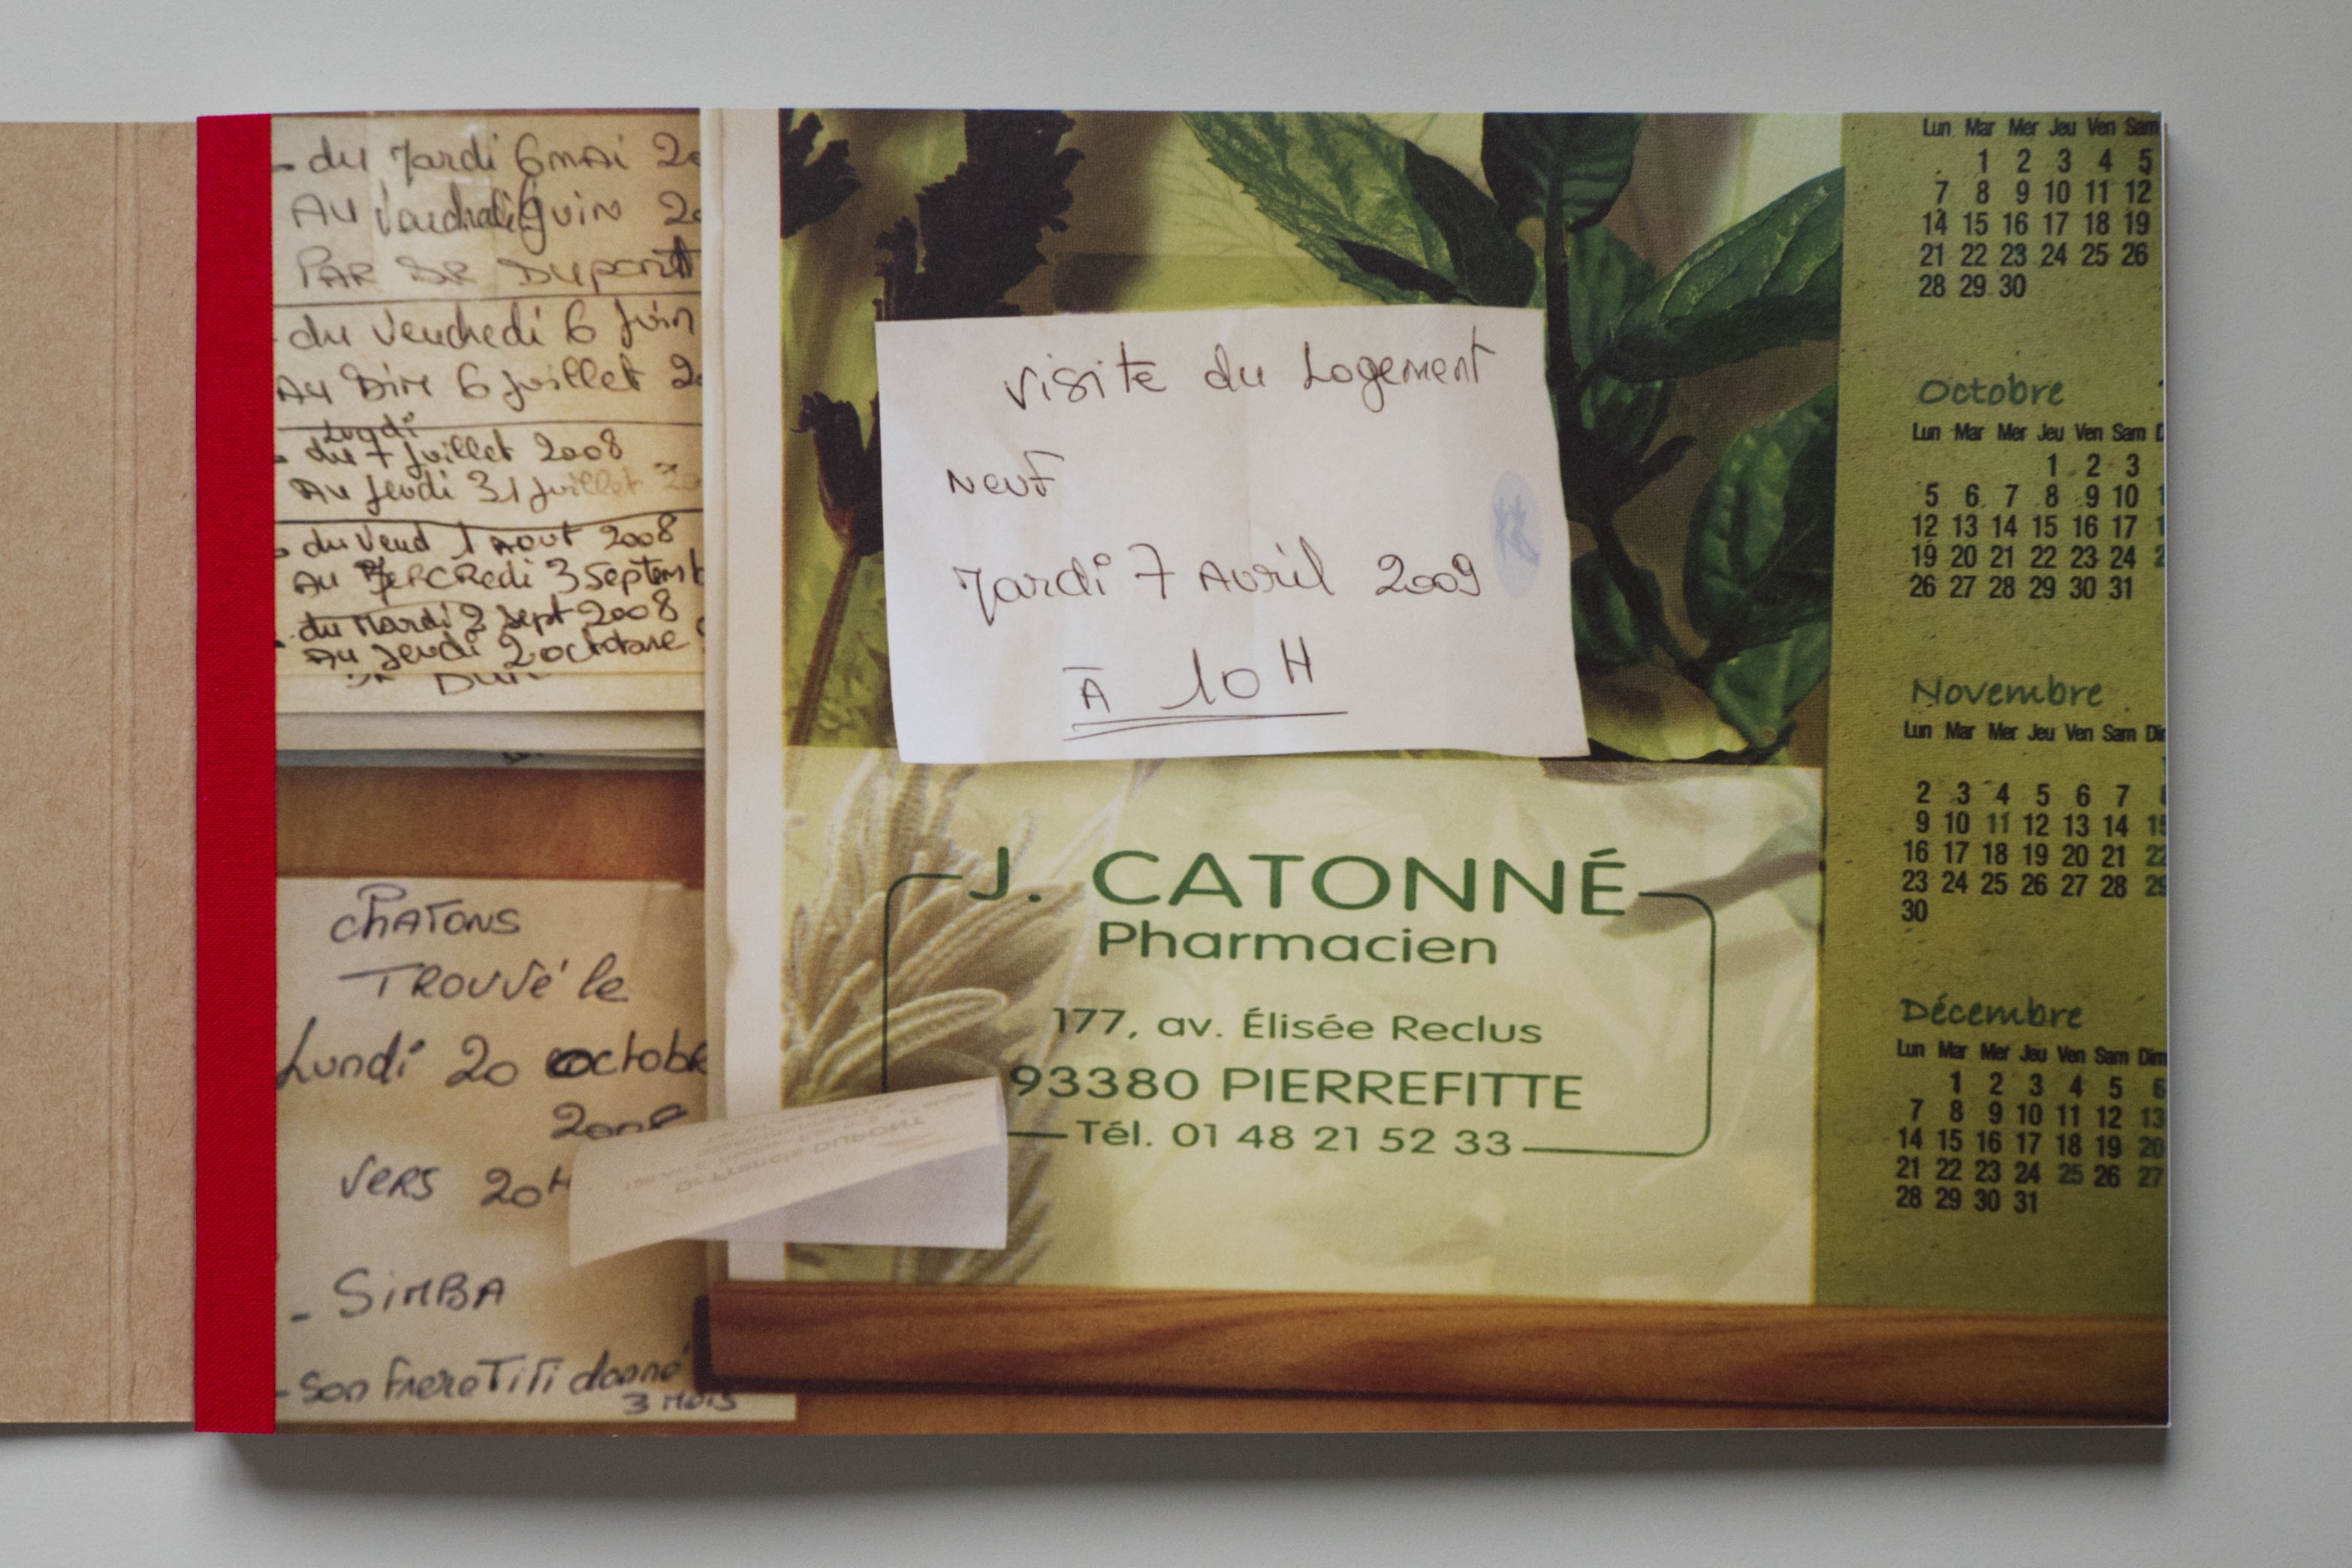 - du Mardi 6 mai 20
AU Vendredi 6 juin 20
PAR DR Dupont
- du Vendredi 6 juin
AU Dim 6 juillet 20
Lundi
- du 7 juillet 2008
AU Jeudi 31 juillet 20
- du Vend 1 AOUT 2008
AU MERCREDI 3 Septemb
- du Mardi 2 Sept 2008
AU Jeudi 2 octobre
CHATONS
TROUVÉ le
Lundi 20 octobre
2008
VERS 20H
- SIMBA
- Son frere TiTi donné
3 MOIS
Visite du Logement
NEUF
Mardi 7 Avril 2009
À 10H
J. CATONNÉ
Pharmacien
177, av. Élisée Reclus
93380 PIERREFITTE
Tél. 01 48 21 52 33
Lun Mar Mer Jeu Ven Sam
1 2 3 4 5
7 8 9 10 11 12
14 15 16 17 18 19
21 22 23 24 25 26
28 29 30
Octobre
Lun Mar Mer Jeu Ven Sam D
1 2 3
5 6 7 8 9 10 1
12 13 14 15 16 17 1
19 20 21 22 23 24 2
26 27 28 29 30 31
Novembre
Lun Mar Mer Jeu Ven Sam Dim
2 3 4 5 6 7 8
9 10 11 12 13 14 15
16 17 18 19 20 21 22
23 24 25 26 27 28 29
30
Décembre
Lun Mar Mer Jeu Ven Sam Dim
1 2 3 4 5 6
7 8 9 10 11 12 13
14 15 16 17 18 19 20
21 22 23 24 25 26 27
28 29 30 31